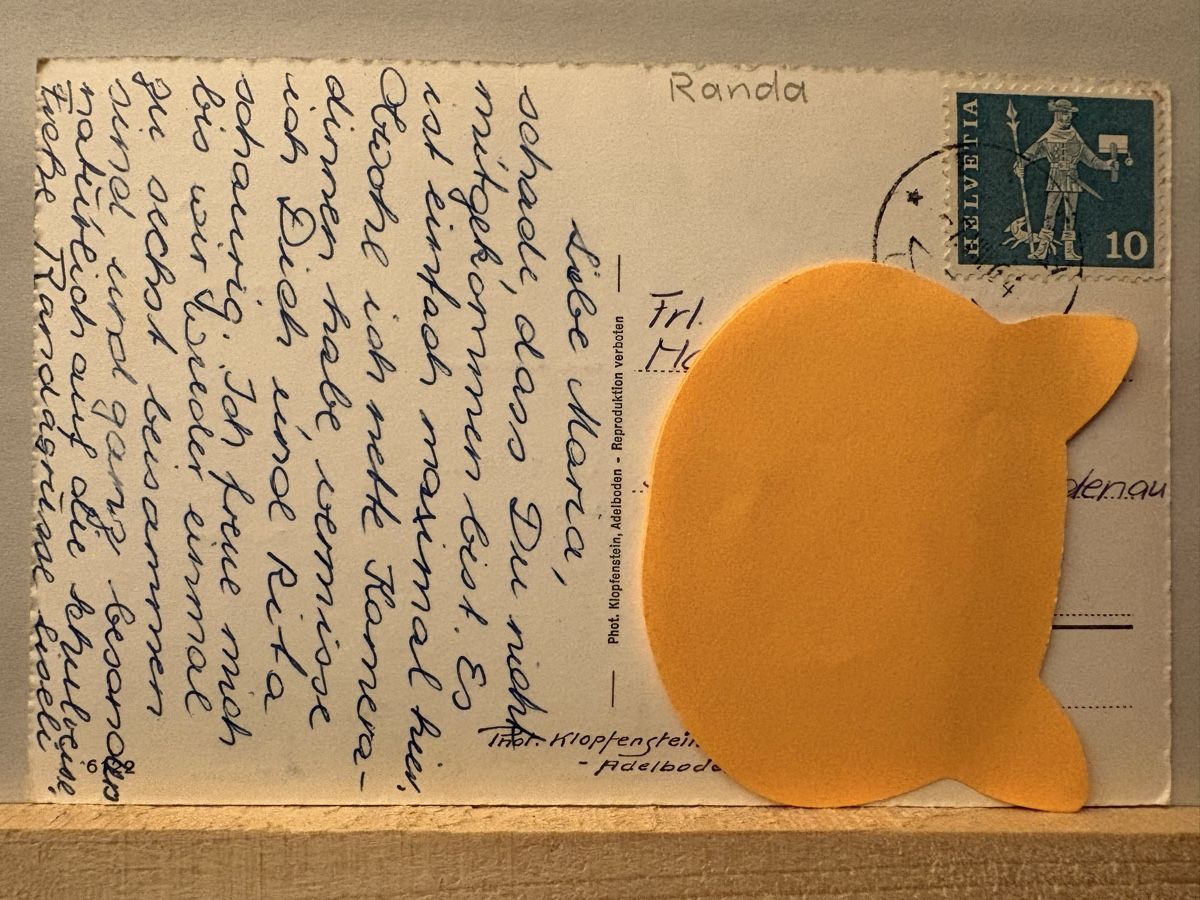 Randa
HELVETIA
10
Liebe Maria,
schade, dass Du nicht
mitgekommen bist. Es
ist einfach maximal hier.
Obwohl ich nette Kamera-
dinnen habe, vermisse
ich Dich und Rita
schaurig. Ich freue mich
bis wir wieder einmal
zu sechst beisammen
sind und ganz besonders
natürlich auf die Schulreise.
Randagrüsse Liseli
Phot. Klopfenstein, Adelboden - Reproduktion verboten
Frl.
denau
Phot. Klopfenstein
- Adelbode